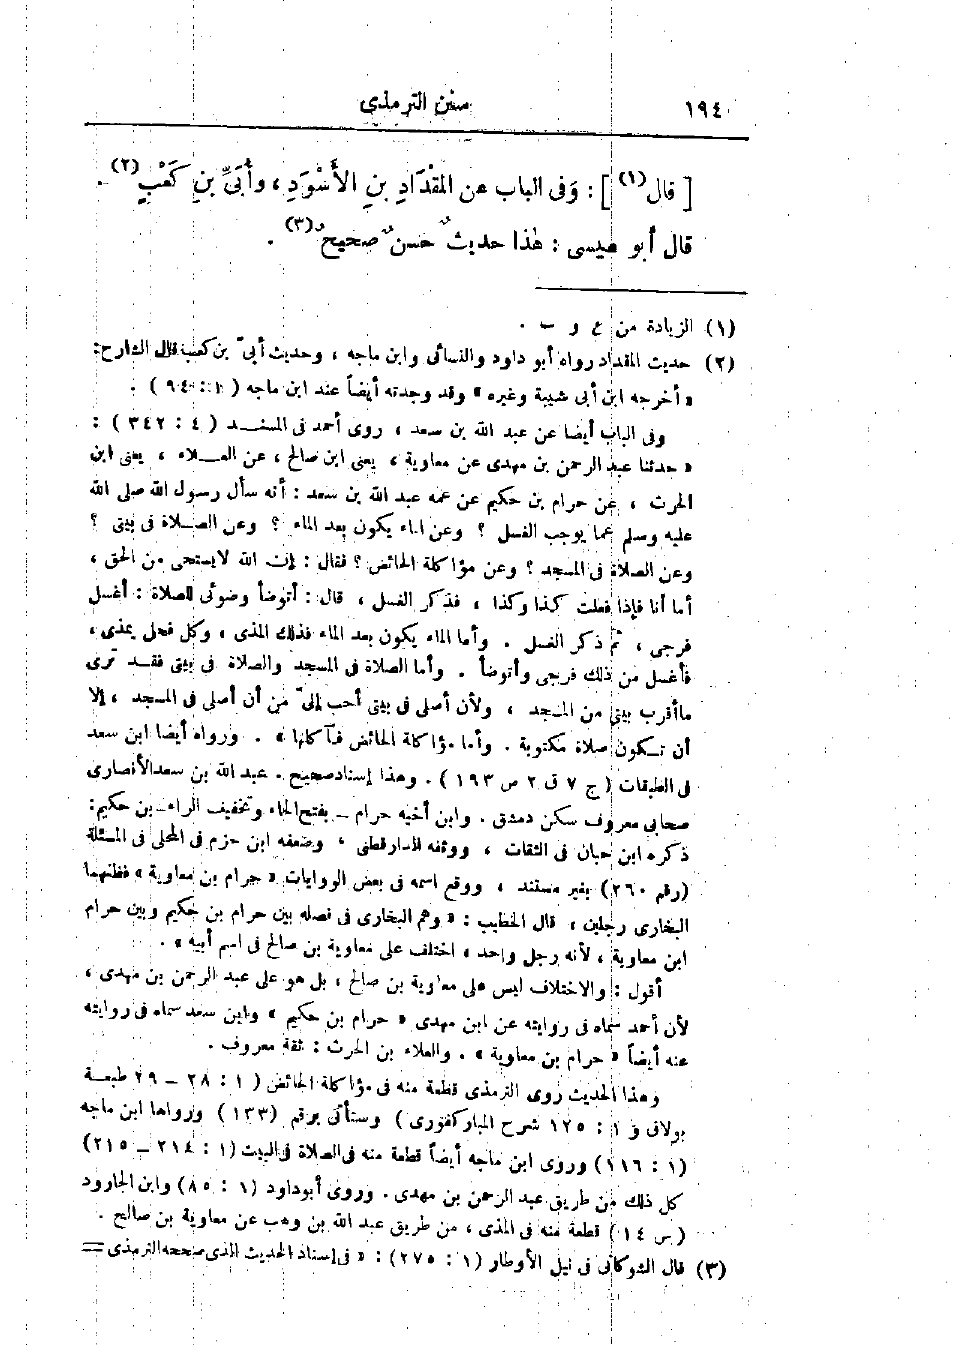 ١٩٤ سنن الترمذى
[ قال(١) ] : وَفى الباب عن المِقْدَادِ بنِ الأَسْوَدِ ، وأُبَىِّ بنِ كَعْبٍ(٢) .
قال أبو عيسى : هٰذا حديثٌ حسنٌ صحيحٌ(٣) .
(١) الزيادة من ع و ب .
(٢) حديث المقداد رواه أبو داود والنسائى وابن ماجه ، وحديث أبىّ بن كعب قال الشارح:
« أخرجه ابن أبى شيبة وغيره » وقد وجدته أيضاً عند ابن ماجه ( ١ : ٩٤ ) .
وفى الباب أيضا عن عبد الله بن سعد ، روى أحمد فى المسند ( ٤ : ٣٤٢ ) :
« حدثنا عبد الرحمن بن مهدى عن معاوية ، يعنى ابن صالح ، عن العلاء ، يعنى ابن
الحرث ، عن حرام بن حكيم عن عمه عبد الله بن سعد : أنه سأل رسول الله صلى الله
عليه وسلم عما يوجب الغسل ؟ وعن الماء يكون بعد الماء ؟ وعن الصلاة فى بيتى ؟
وعن الصلاة فى المسجد ؟ وعن مؤاكلة الحائض ؟ فقال : إن الله لا يستحى من الحق ،
أما أنا فإذا فعلت كذا وكذا ، فذكر الغسل ، قال : أتوضأ وضوئى للصلاة : أغسل
فرجى ، ثم ذكر الغسل . وأما الماء يكون بعد الماء فذلك المذى ، وكل فحل يمذى ،
فأغسل من ذلك فرجى وأتوضأ . وأما الصلاة فى المسجد والصلاة فى بيتى فقد ترى
ما أقرب بيتى من المسجد ، ولأن أصلى فى بيتى أحب إلىّ من أن أصلى فى المسجد ، إلا
أن تكون صلاة مكتوبة . وأما مؤاكلة الحائض فآكلها » . ورواه أيضا ابن سعد
فى الطبقات ( ج ٧ ق ٢ ص ١٩٣ ) . وهذا إسناد صحيح . عبد الله بن سعد الأنصارى
صحابى معروف سكن دمشق . وابن أخيه حرام ـ بفتح الحاء وتخفيف الراء ـ بن حكيم :
ذكره ابن حبان فى الثقات ، ووثقه الدارقطنى ، وضعفه ابن حزم فى المحلى فى المسئلة
(رقم ٢٦٠) بغير مستند ، ووقع اسمه فى بعض الروايات « حرام بن معاوية » فظنهما
البخارى رجلين ، قال الخطيب : « وهم البخارى فى فصله بين حرام بن حكيم وبين حرام
ابن معاوية ، لأنه رجل واحد ، اختلف على معاوية بن صالح فى اسم أبيه » .
أقول : والاختلاف ليس على معاوية بن صالح ، بل هو على عبد الرحمن بن مهدى ،
لأن أحمد سماه فى روايته عن ابن مهدى « حرام بن حكيم » وابن سعد سماه فى روايته
عنه أيضاً « حرام بن معاوية » . والعلاء بن الحرث : ثقة معروف .
وهذا الحديث روى الترمذى قطعة منه فى مؤاكلة الحائض ( ١ : ٢٨ ـ ٢٩ طبعة
بولاق و ١ : ١٢٥ شرح المباركفورى ) وستأتى برقم (١٣٣) ورواها ابن ماجه
(١ : ١١٦) وروى ابن ماجه أيضاً قطعة منه فى الصلاة فى البيت (١ : ٢١٤ ـ ٢١٥)
كل ذلك من طريق عبد الرحمن بن مهدى . وروى أبو داود (١ : ٨٥) وابن الجارود
(ص ١٤) قطعة منه فى المذى ، من طريق عبد الله بن وهب عن معاوية بن صالح .
(٣) قال الشوكانى فى نيل الأوطار (١ : ٢٧٥) : « فى إسناد الحديث الذى صححه الترمذى =